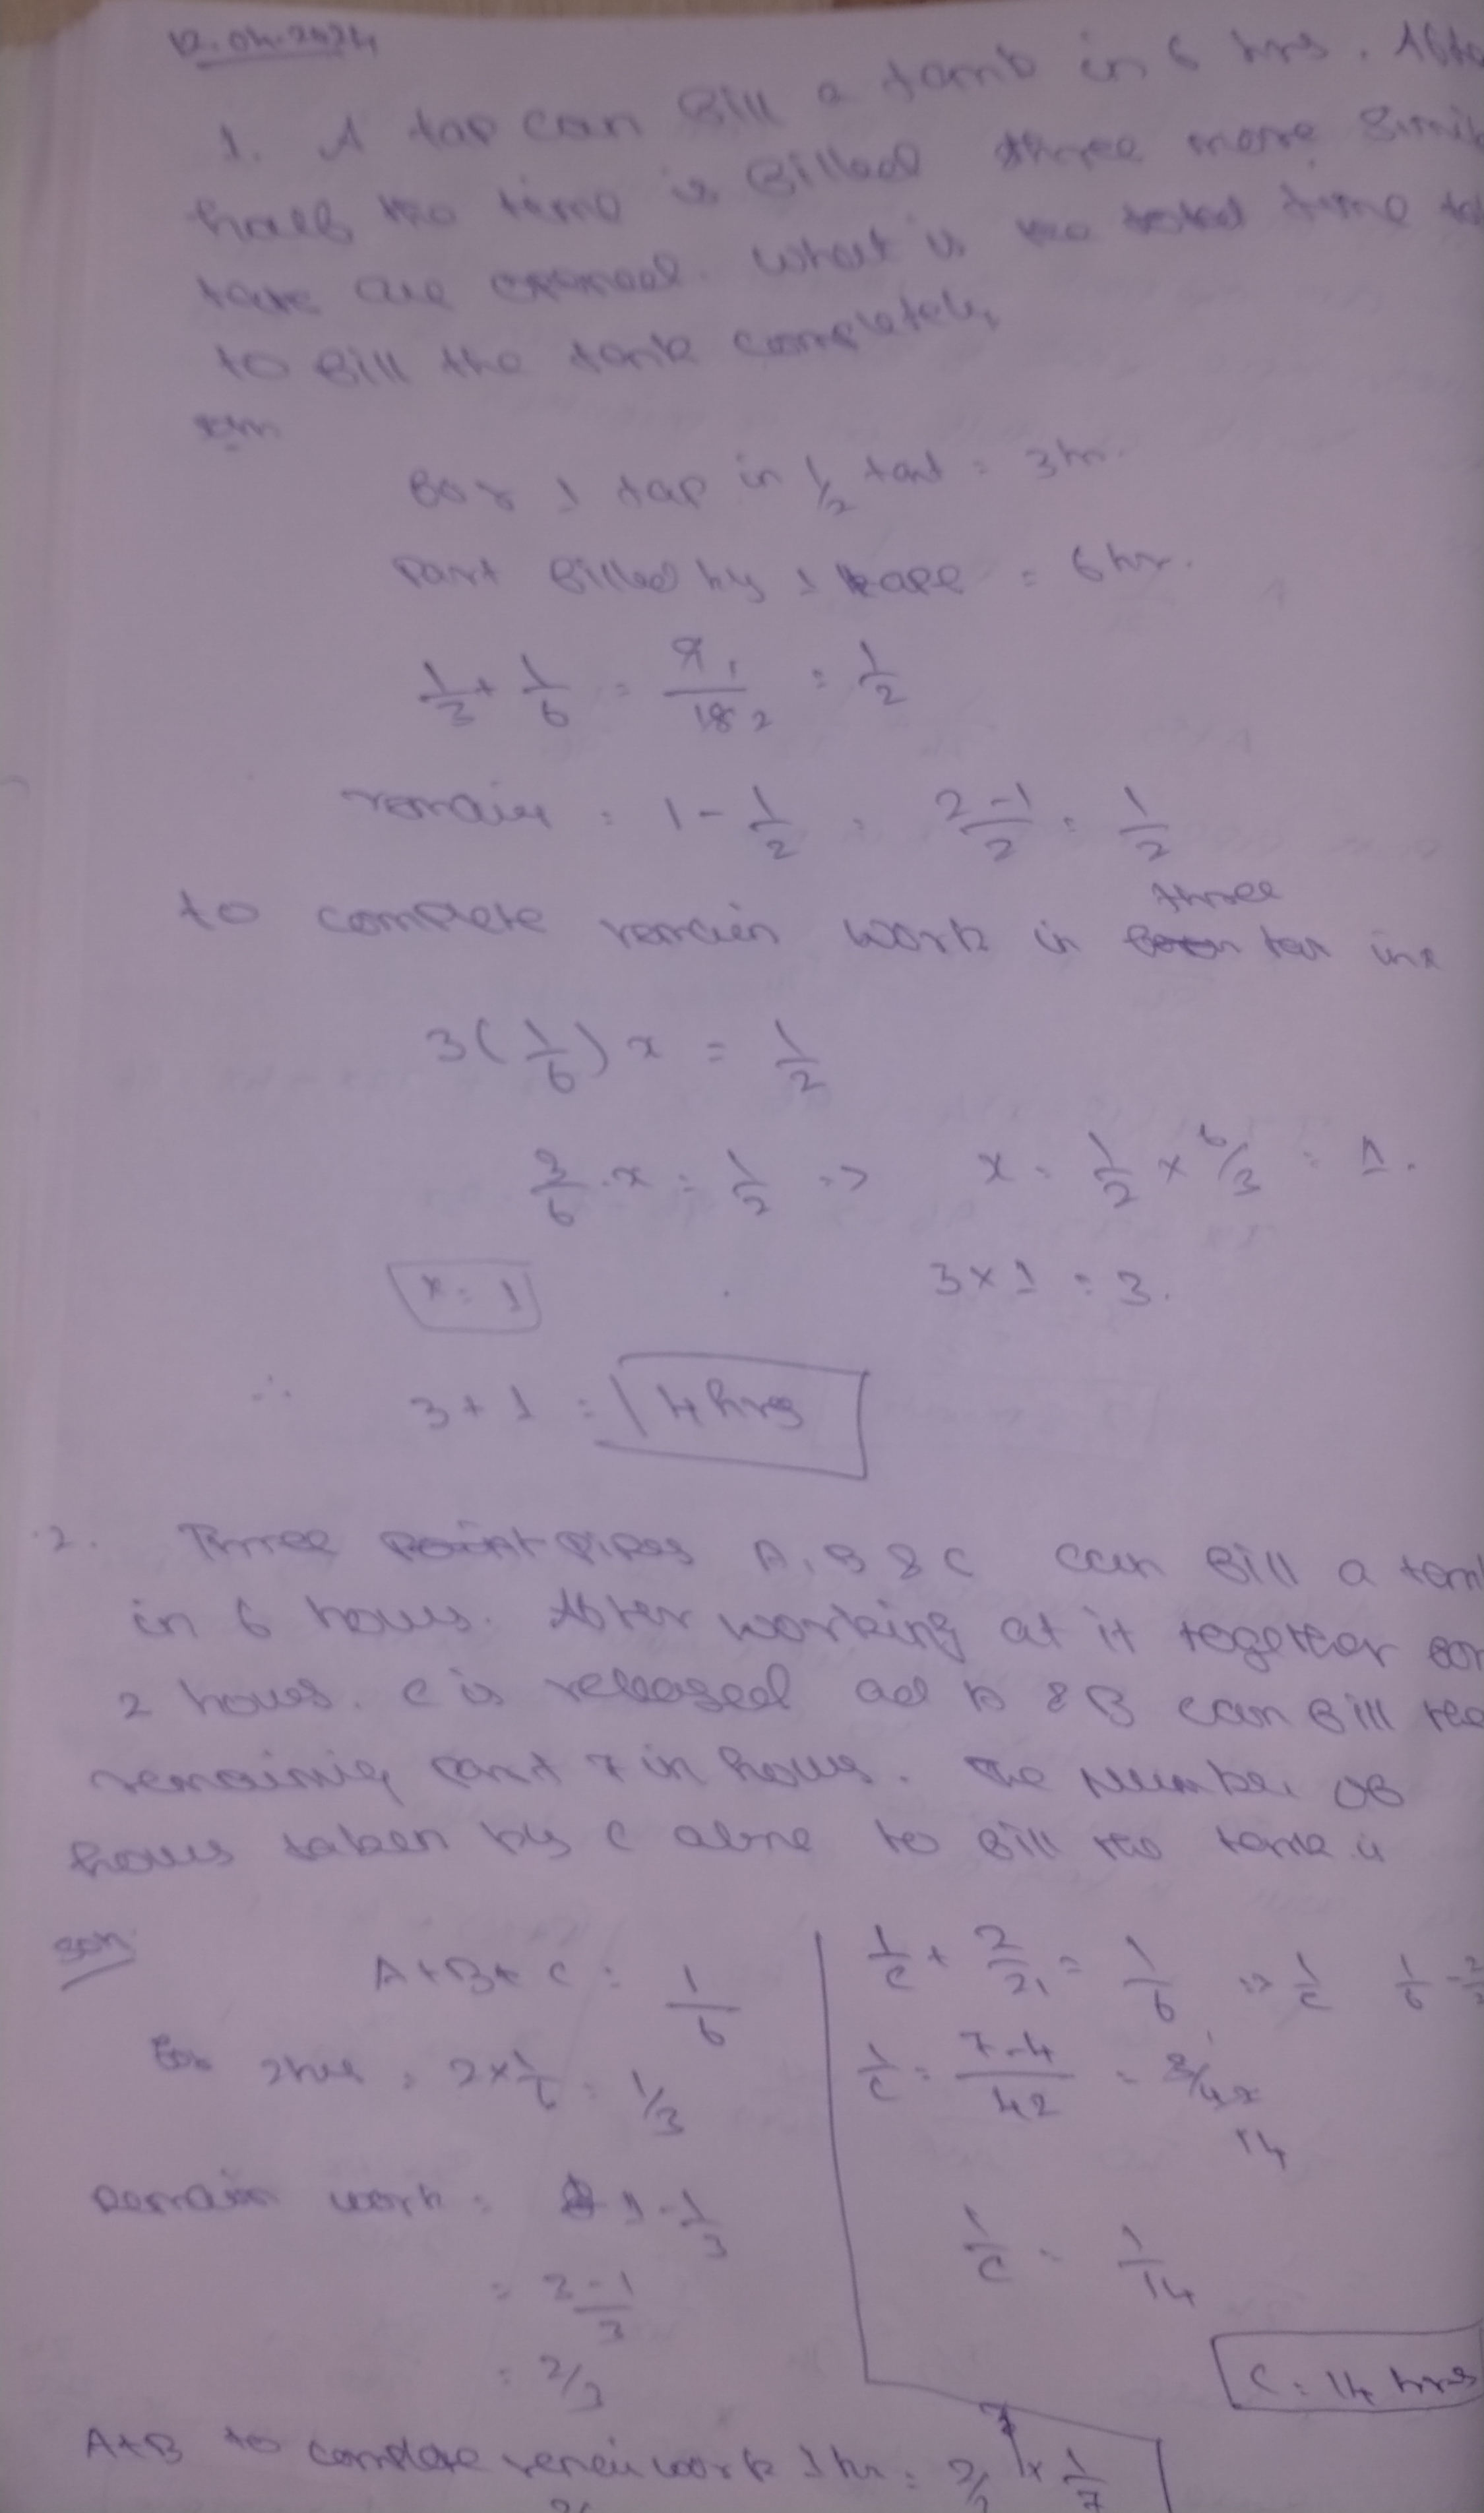 12.04.2024
1. A tap can fill a tank in 6 hrs. Afte
half the time is filled three more simil
taps are opened. What is the total time ta
to fill the tank completely
soln
for 1 tap in 1/2 tank = 3 hr.
part filled by 1 tape = 6 hr.
1/3 + 1/6 = 9 1 / 18 2 = 1/2
remain = 1 - 1/2 = 2-1/2 = 1/2
to complete remain work in three tap in x
3(1/6)x = 1/2
3/6 . x = 1/2 => x = 1/2 x 6/3 = 1.
x = 1
3 x 1 = 3.
∴ 3 + 1 = 4 hrs
2. Three pipes A, B & C can fill a tank
in 6 hours. After working at it together for
2 hours. C is released ad A & B can fill the
remaining part 7 in hours. The Number of
hours taken by C alone to fill the tank is
soln
A+B+C = 1/6
for 2hrs = 2x1/6 = 1/3
Remain work = 1 - 1/3
= 2-1/3
= 2/3
A+B to complete remain work 1 hr = 2/3 x 1/7
1/c + 2/21 = 1/6 => 1/c 1/6 - 2/2
1/c = 7-4/42 = 3/42
14
1/c = 1/14
C = 14 hrs